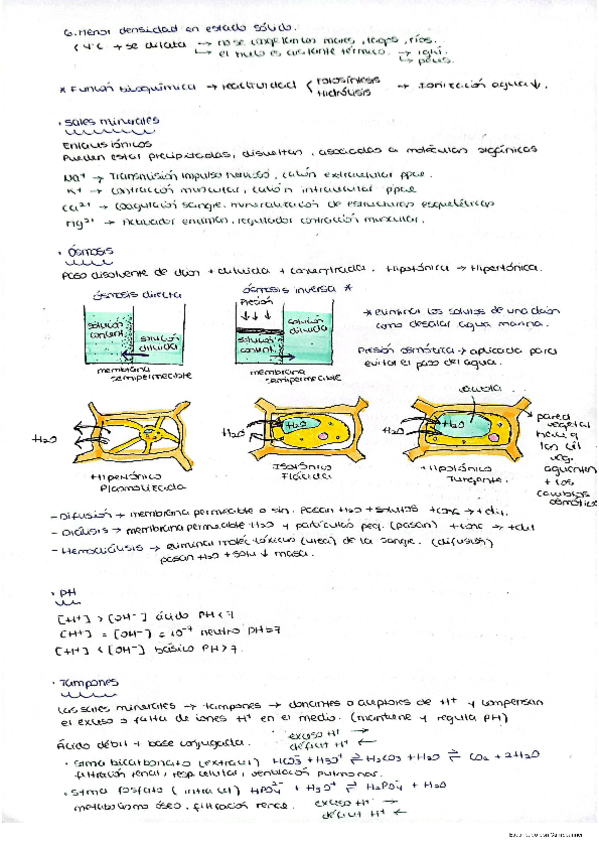 6. Menor densidad en estado sólido.
< 4ºC → se dilata → no se congelan los mares, lagos, ríos.
→ el hielo es aislante térmico. → iglú.
→ peces.
* Función bioquímica → reactividad < fotosíntesis → Ionización agua ↓.
hidrólisis
· Sales minerales
Enlaces iónicos
Pueden estar precipitadas, disueltas, asociadas a moléculas orgánicas
Na⁺ → Transmisión impulso nervioso, catión extracelular ppal.
K⁺ → contracción muscular, catión intracelular ppal.
Ca²⁺ → coagulación sangre, mineralización de estructuras esqueléticas
Mg²⁺ → Activador enzimas, regulador contracción muscular.
· Ósmosis
Paso disolvente de dson + diluida + concentrada. Hipotónica → Hipertónica.
ósmosis directa
ósmosis inversa *
Presión
solución concent.
solución diluida
membrana semipermeable
solución concent.
solución diluida
membrana semipermeable
* eliminar los solutos de una dson
como desalar agua marina.
Presión osmótica → aplicada para
evitar el paso del agua.
vacuola
H₂O
H₂O
H₂O
H₂O
H₂O
Hipertónico
Plasmolizada
Isotónico
Flácida
Hipotónico
Turgente.
pared
vegetal
hace q
las cél
veg.
aguanten
+ los
cambios
osmóticos
- Difusión → membrana permeable o sin. Pasan H₂O + solutos +conc → +dil.
- Diálisis → membrana permeable H₂O y partículas peq. (pasan) +conc → +dil
- Hemodiálisis → eliminar moléc tóxicas (urea) de la sangre. (difusión)
pasan H₂O + solu ↓ masa.
· PH
[H⁺] > [OH⁻] ácido PH<7
[H⁺] = [OH⁻] = 10⁻⁷ neutro PH=7
[H⁺] < [OH⁻] básico PH>7.
· Tampones
Las sales minerales → tampones → donantes o aceptores de H⁺ y compensan
el exceso o falta de iones H⁺ en el medio. (mantiene y regula PH)
Ácido débil + base conjugada.
exceso H⁺ →
déficit H⁺ ←
· Stma bicarbonato (extracel) HCO₃⁻ + H₃O⁺ ⇌ H₂CO₃ + H₂O ⇌ CO₂ + 2H₂O
filtración renal, resp celular, ventilación pulmonar.
· Stma fosfato (intracel) HPO₄²⁻ + H₃O⁺ ⇌ H₂PO₄⁻ + H₂O
metabolismo óseo, filtración renal.
exceso H⁺ →
déficit H⁺ ←